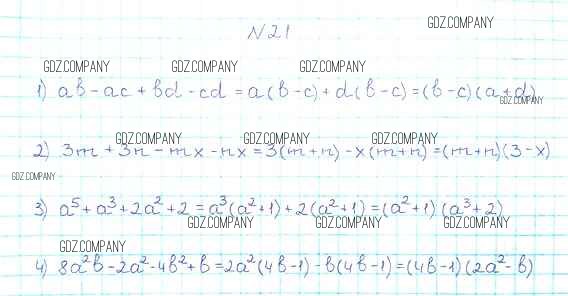 N21
GDZ.COMPANY
GDZ.COMPANY GDZ.COMPANY GDZ.COMPANY
1) ab - ac + bd - cd = a(b-c) + d(b-c) = (b-c)(a+d)
GDZ.COMPANY
GDZ.COMPANY GDZ.COMPANY GDZ.COMPANY
2) 3m + 3n - mx - nx = 3(m+n) - x(m+n) = (m+n)(3-x)
GDZ.COMPANY
3) a⁵ + a³ + 2a² + 2 = a³(a²+1) + 2(a²+1) = (a²+1)(a³+2)
GDZ.COMPANY GDZ.COMPANY GDZ.COMPANY
GDZ.COMPANY
4) 8a²b - 2a² - 4b² + b = 2a²(4b-1) - b(4b-1) = (4b-1)(2a²-b)